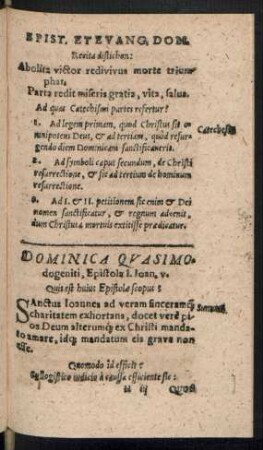 EPIST. ET EVANG. DOM.
Recita distichon:
Abolita victor redivivus morte trium
phat,
Parta redit miseris gratia, vita, salus.
Ad quas Catechismi partes refertur?
1. Ad legem primam, quod Christus sit o
mnipotens Deus, & ad tertiam, quod resur-
gendo diem Dominicam sanctificaverit.
Catechesis
2. Ad symboli caput secundum, de Christi
resurrectione, & sic ad tertium de hominum
resurrectione.
3. Ad I. & II. petitionem sic enim & Dei
nomen sanctificatur, & regnum advenit,
dum Christus à mortuis extitisse prædicatur.
DOMINICA QVASIMO-
dogeniti, Epistola I. Ioan, v.
Quis est huius Epistolæ scopus?
SAnctus Ioannes ad veram sinceramq́
charitatem exhortans, docet verè pi
os Deum alterumq́ ex Christi manda
to amare, idq́ mandatum eis grave non
esse.
Quomodo id efficit?
Syllogistico iudicio à causa efficiente sic:
ii iij Quod